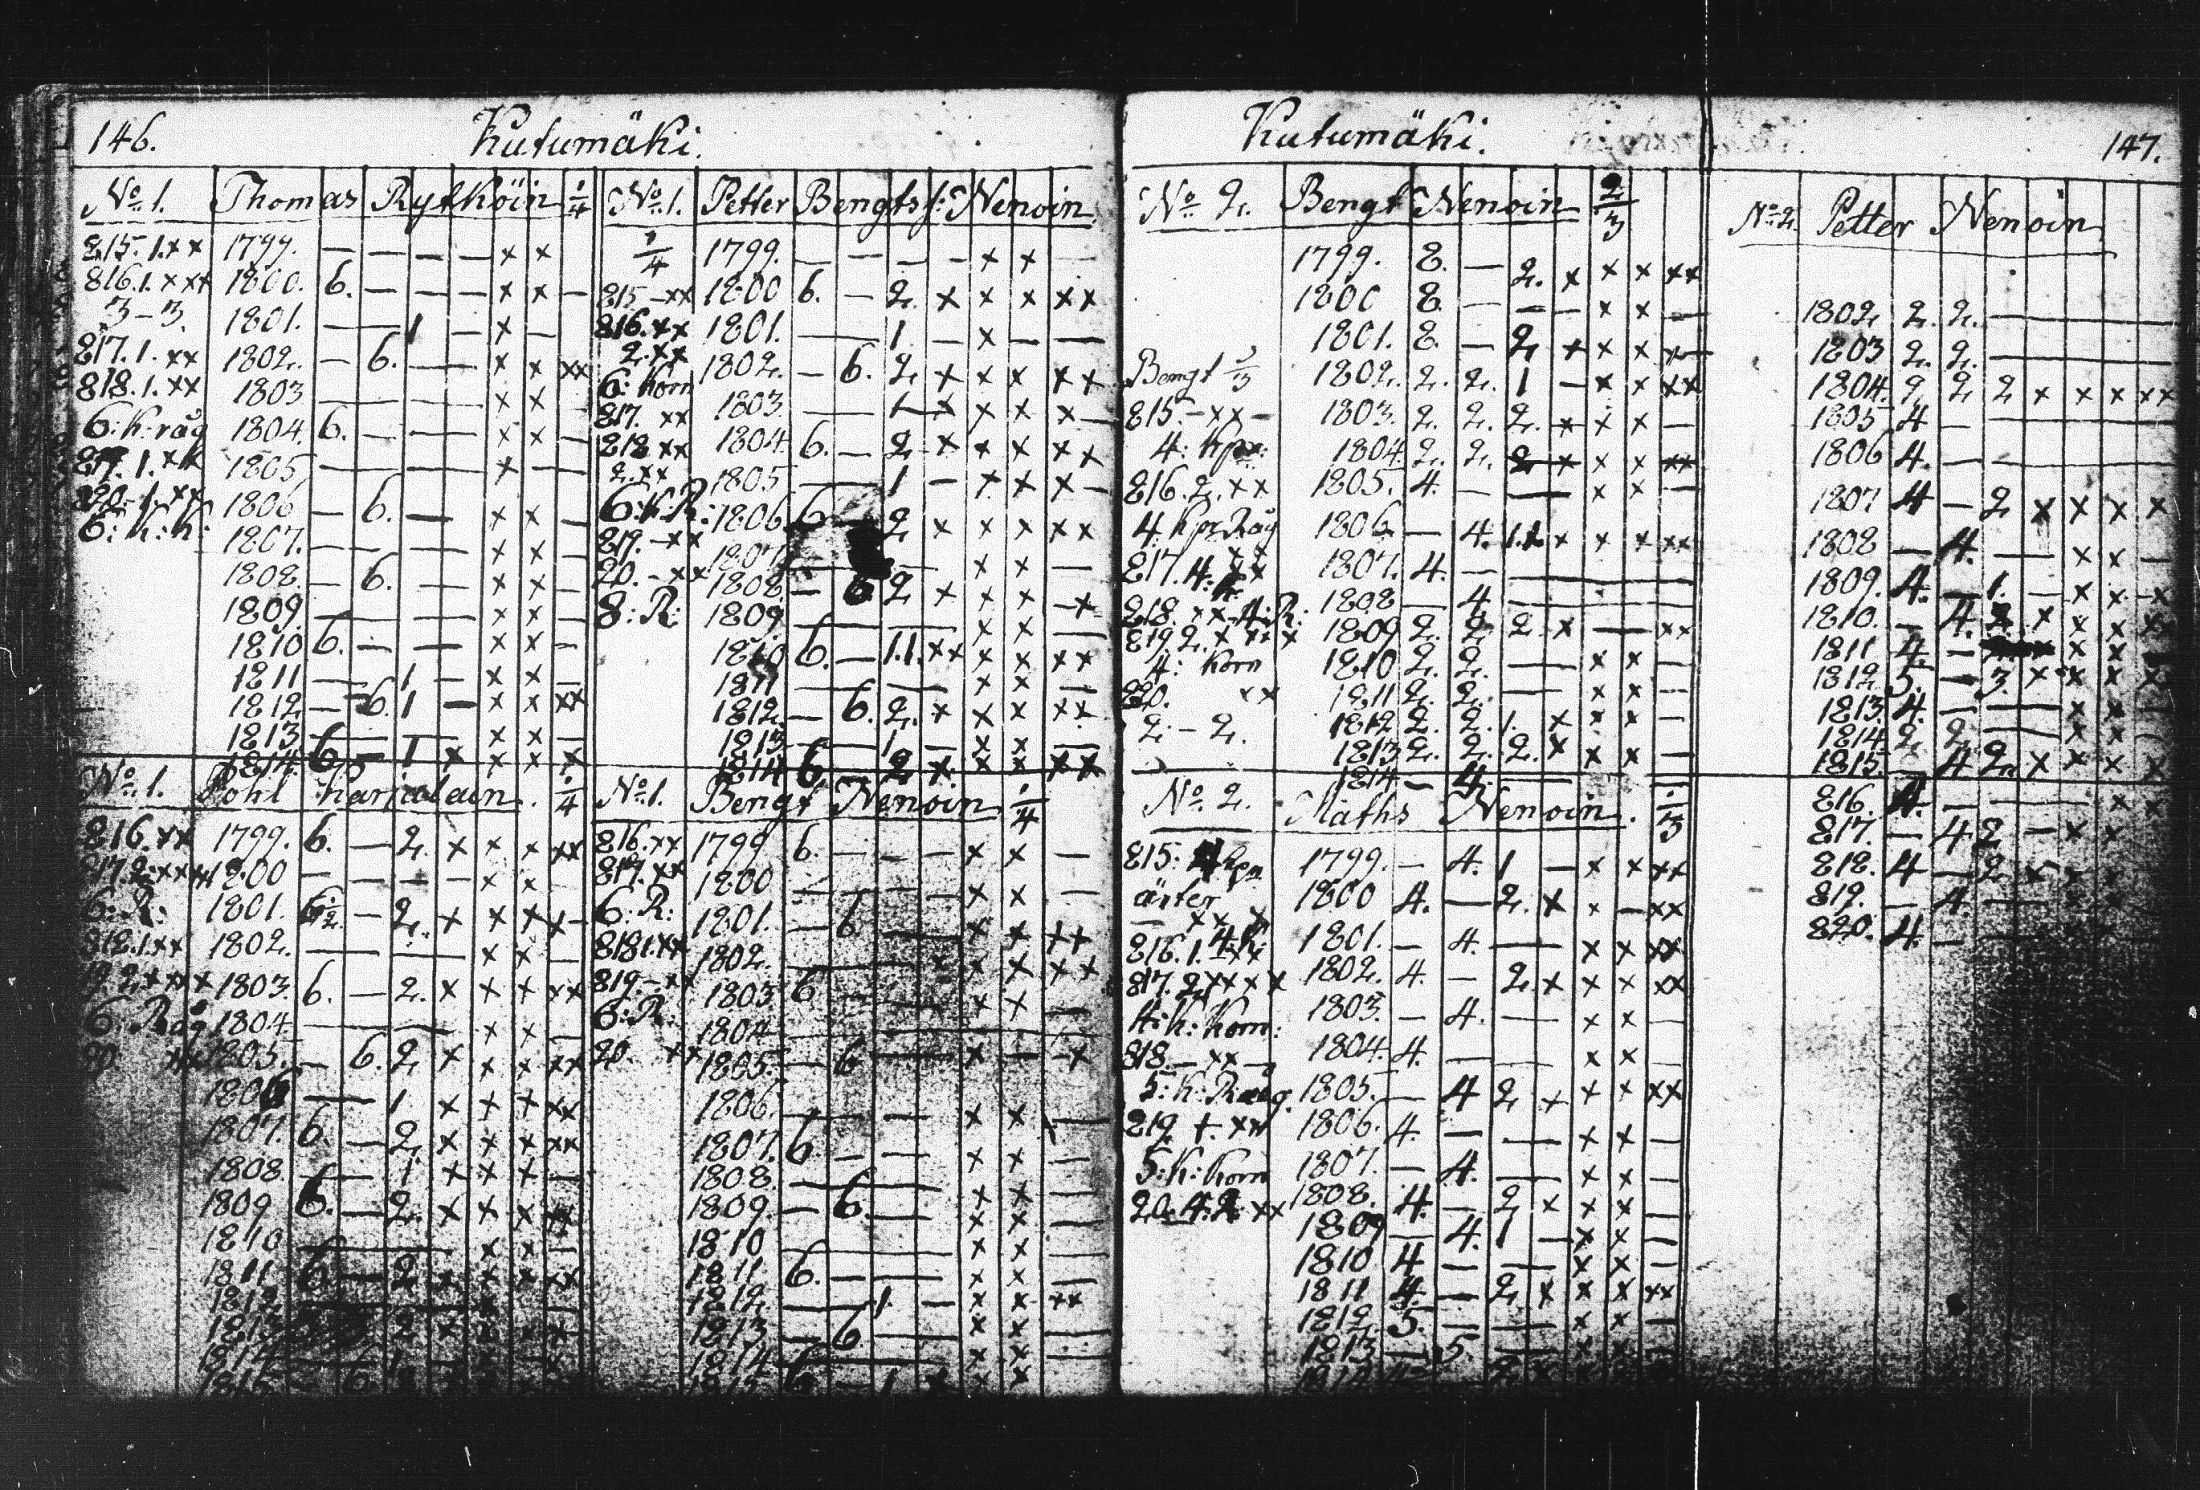 146.
Kutumäki.
No 1. Thomas Rytköin 1/4
815. 1. x x 1799. — — — — x x
816. 1. x xx 1800. 6. — — — x x —
3 – 3. 1801. — — 1 — x —
817. 1. xx 1802. — 6. — — x x xx
818. 1. xx 1803 — — x x —
6: K: råg 1804. 6. — — — x x —
1. xx 1805 — — — x — —
1806 — 6. — x x —
6: K: K: 1807. — — — x x —
1808. — 6. — — x x —
1809. — — x x —
1810 6. — — x x —
1811 — 1 — x x —
1812 — 6. 1 — x x xx
1813 — — x x —
1814. 6. — 1 x x x x
No 1. Petter Bengts s: Nenoin
1/4 1799. — — — – x x —
815 – xx 1800 6. — 2. x x x xx
816. xx 1801. — — 1. — x — —
2. xx 1802. — 6. 2. x x x xx
6: Korn
817. xx 1803. — 1 x x x x –
818 xx 1804. 6. — 2. x x x xx
2. xx 1805 — — 1 — x x x –
6: K: R: 1806 6 2 x x x xx
819. – xx 1807 — x x —
20. – xx 1808. — 6 2 x x x –x
8: R: 1809 — — x x —
1810 6. — 1.1. xx x x xx
1811 — — x x —
1812. — 6. 2. x x x xx
1813. — 1. — x x —
1814 6. 2. x x x xx
No 1. Pohl Karjalain. 1/4
816. xx 1799. 6. — 2. x x x xx
1800 — — — — x x
6: R: 1801. 6 1/2. — 2. x x x x –
818. 1. xx 1802. — — x x —
1803. 6. — 2. x x x xx
6: Råg 1804 — — x x —
20. 1805. — 6. 2 x x x xx
1806 — 1. x x x xx
1807. 6. — 2. x x x xx
1808 — 1 x x x —
1809 6. — 2. x x x
1810 — — x x —
1811 6. — 2. x x x xx
1812
1813 2 x x
1814 6 1
No 1. Bengt Nenoin 1/4
816. xx 1799 6. — — — x x —
817. xx 1800 — — — x x —
6: R: 1801. — 6. — x x xx
818. 1. xx 1802. — x x x x
819. – xx 1803 6 — x x —
6: R: 1804 — —
20. xx 1805. — 6 — x — x
1806. — — — x x —
1807. 6. — — x x —
1808. — — x x —
1809. — 6. — x x —
1810 — — x x —
1811 6. — — x x —
1812 — 1. — x x xx
1813 — 6. — x x —
1814 6 — — x x —
147.
Kutumäki.
No 2. Bengt Nenoin 2/3
1799. 8. — 2. x x x xx
1800 8. — — — x x —
1801. 8. — 2. x x x x —
Bengt 1/3 1802. 2. 2. 1 — x x xx
815. – xx – 1803. 2. 2. 2. x x x —
4: 1804. 2. 2. 2 x x x xx
816. 2. xx 1805. 4. — — x x —
4. Råg 1806. — 4. 1.1. x x x xx
817. 4. xx 1807. 4. — —
818. xx 4: R: 1808 — 4. —
819 2. x xx x 1809 2. 2. 2. x — xx
4: Korn 1810 2. 2. — x x —
820. xx 1811 2. 2. — x x —
2. – 2. 1812 2. 2. 1. x x x —
1813 2. 2. 2. x x x —
1814 — 4. —
No 2. Petter Nenoin
1802 2. 2. —
1803 2. 2. —
1804. 2. 2. 2 x x x xx
1805 4 — —
1806 4. — —
1807 4 — 2 x x x x
1808 — 4. — x x —
1809. 4. — 1. — x x –x
1810. — 4. x x x
1811 4. — x x
1812. 5. — 3. x x x
1813. 4. — — x x —
1814 2. 2. — x x —
1815. 4. 2. x x x x
816. 4. — — x x
817. — 4 2 — x x
818. 4 — 2. x x
819. — 4. —
820. 4. —
No 2. Maths Nenoin. 1/3
815: 1799. — 4. 1 — x x xx
ärter 1800 4. — 2. x x — xx
– xx x
816. 1. xx 1801. — 4. — x x xx
817. 2. xx x x 1802. 4. — 2. x x x xx
4: K: Korn: 1803. — 4. — x x —
818. – xx – 1804. 4. — — x x —
5: K: Råg. 1805. — 4 2. x x x xx
819. 1806. 4. — — x x —
5: K: Korn 1807. — 4. — x x —
20. 4: R: xx 1808. 4. — 2 x x x —
1809 — 4. 1 — x x —
1810 4 — — x x —
1811 4. — 2. x x x xx
1812. 5. — — x x —
1813 — 5. — x x —